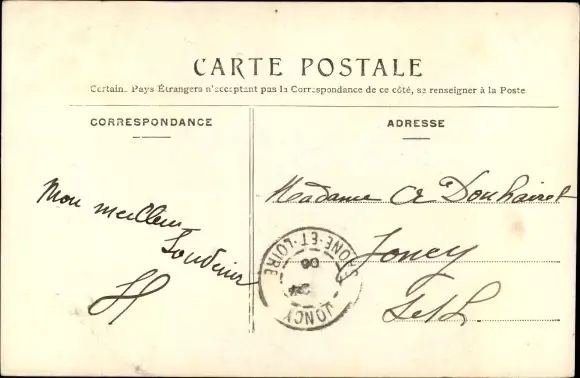 CARTE POSTALE
Certains Pays Étrangers n'acceptant pas la Correspondance de ce côté, se renseigner à la Poste
CORRESPONDANCE
ADRESSE
Mon meilleur
Souvenir
Madame
Joncy
S et L
SAONE-ET-LOIRE
06
JONCY